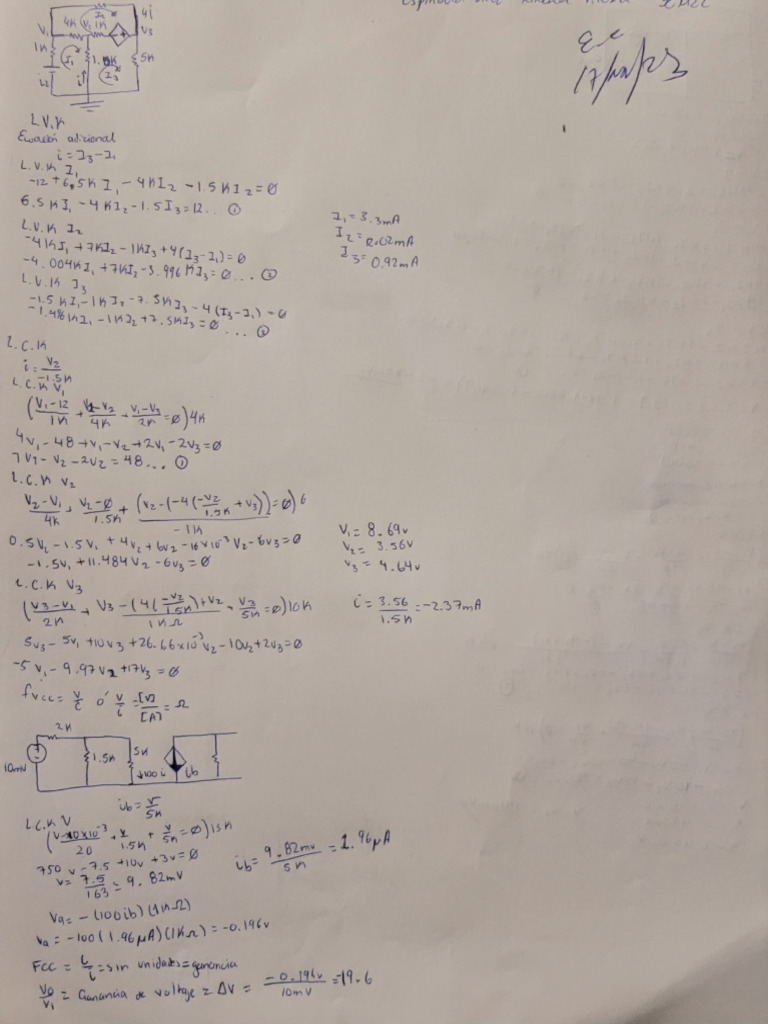 4i
4K V₂ 1K
V₁
V₃
1K
I₁
5K
i
I₃
L.V.K
Ecuación adicional
i = I₃ - I₁
L.V.K I₁
-12 + 6.5K I₁ - 4KI₂ - 1.5KI₂ = 0
6.5KI₁ - 4KI₂ - 1.5I₃ = 12... ①
L.V.K I₂
-4KI₁ + 7KI₂ - 1KI₃ + 4(I₃-I₁) = 0
-4.004KI₁ + 7KI₂ - 3.996KI₃ = 0 ... ②
L.V.K I₃
-1.5KI₁ - 1KI₂ - 7.5KI₃ - 4(I₃-I₁) = 0
-1.496KI₁ - 1KI₂ + 7.5KI₃ = 0 ...
I₁ = 3.3mA
I₂ = 2.02mA
I₃ = 0.92mA
L.C.K
i = V₂/-1.5K
L.C.K V₁
(V₁-12/1K + V₁-V₂/4K + V₁-V₃/2K = 0) 4K
4V₁ - 48 + V₁ - V₂ + 2V₁ - 2V₃ = 0
7V₁ - V₂ - 2V₂ = 48 ... ①
L.C.K V₂
V₂-V₁/4K + V₂-0/1.5K + (V₂-(-4(-V₂/1.5K + V₃))/-1K = 0) 6
0.5V₂ - 1.5V₁ + 4V₂ + 6V₂ - 16x10⁻³V₂ - 6V₃ = 0
-1.5V₁ + 11.484V₂ - 6V₃ = 0
V₁ = 8.69v
V₂ = 3.56v
V₃ = 4.64v
L.C.K V₃
(V₃-V₁/2K + V₃-(4(-V₂/1.5K)+V₂/1KΩ + V₃/5K = 0) 10K
i = 3.56/1.5K = -2.37mA
5V₃ - 5V₁ + 10V₃ + 26.66x10⁻³V₂ - 10V₂ + 2V₃ = 0
-5V₁ - 9.97V₂ + 17V₃ = 0
fvcc = v/i ó v/i = [V]/[A] = Ω
2K
10mV
1.5K
5K
↓100i
ib
ib = v/5K
L.C.K V
(V-10x10⁻³/20 + v/1.5K + v/5K = 0) 15K
750v - 7.5 + 10v + 3v = 0
v = 7.5/163 = 9.82mV
ib = 9.82mv/5K = 1.96µA
Va = -(100ib)(1KΩ)
Va = -100(1.96µA)(1KΩ) = -0.196v
FCC = i/i = sin unidades = ganancia
V₀/V₁ = Ganancia de voltaje = ΔV = -0.196v/10mV = -19.6